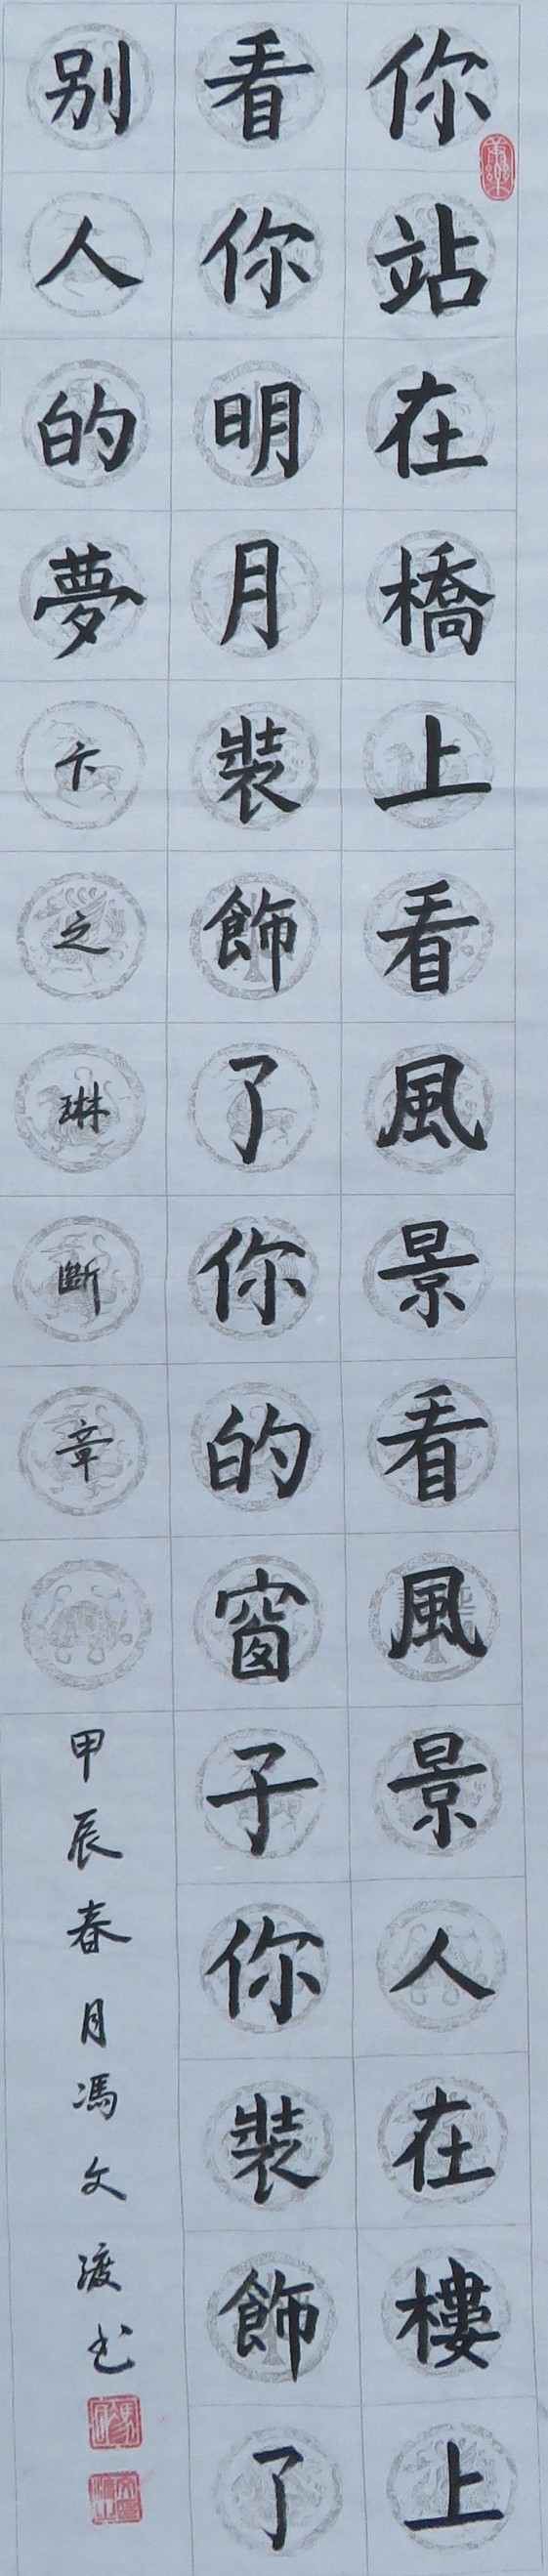 你站在橋上看風景看風景人在樓上
看你明月裝飾了你的窗子你裝飾了
别人的夢卞之琳斷章 甲辰春月馮文渡书